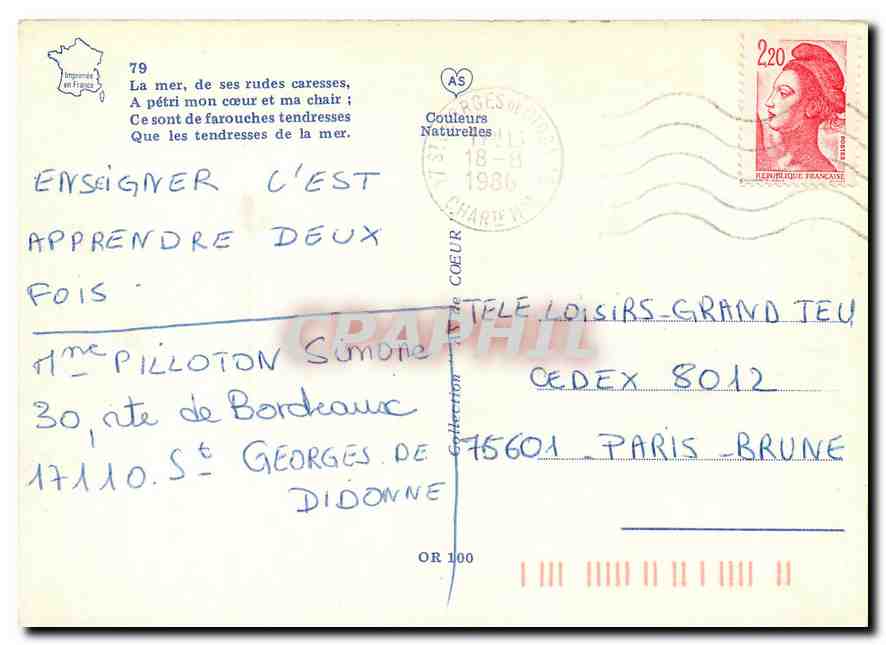 Imprimée
en France
79
La mer, de ses rudes caresses,
A pétri mon cœur et ma chair ;
Ce sont de farouches tendresses
Que les tendresses de la mer.
AS
Couleurs
Naturelles
18-8
1986
2,20
POSTES
REPUBLIQUE FRANÇAISE
ENSEIGNER C'EST
APPRENDRE DEUX
FOIS.
Mme PILLOTON Simone
30, rte de Bordeaux
17110. St GEORGES DE
DIDONNE
Collection AS de CŒUR
TELE LOISIRS-GRAND JEU
CEDEX 8012
75601 - PARIS - BRUNE
CPAPHIL
OR 100